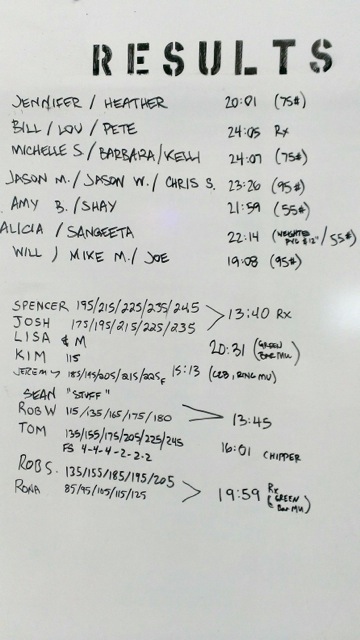 RESULTS
JENNIFER / HEATHER 20:01 (75#)
BILL / LOU / PETE 24:05 Rx
MICHELLE S. / BARBARA / KELLI 24:07 (75#)
JASON M. / JASON W. / CHRIS S. 23:26 (95#)
AMY B. / SHAY 21:59 (55#)
ALICIA / SANGEETA 22:14 (WEIGHTED / 55#)
WILL / MIKE M. / JOE 19:08 (95#)
SPENCER 195/215/225/235/245
JOSH 175/195/215/225/235 13:40 Rx
LISA & M
KIM 115 20:31 (GREEN BAR MU)
JEREMY 185/195/205/215/225F 15:13 (RING MU)
SEAN "STUFF"
ROB W 115/135/165/175/180 13:45
TOM 135/155/175/205/225/245
FS 4-4-4-2-2-2 16:01 CHIPPER
ROB S. 135/155/185/195/205
RONA 85/95/105/115/125 19:59 Rx & (GREEN Bar MU)